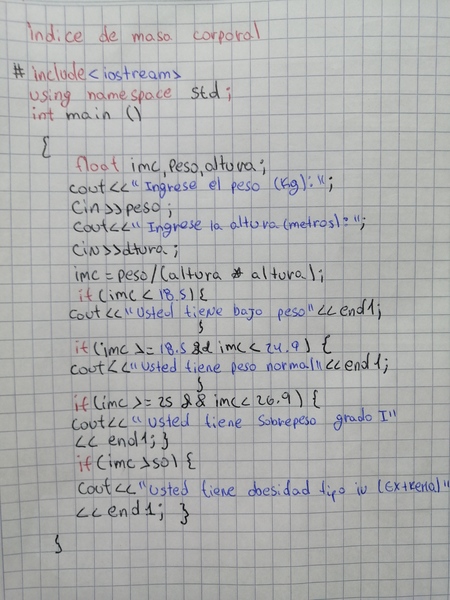 indice de masa corporal
# include<iostream>
using namespace std;
int main ()
{
float imc, Peso, altura;
cout<<"Ingrese el peso (Kg):";
Cin>>peso;
coutcc"Ingrese la altura (metros):";
Cin>>altura;
imc = peso/(altura * altura);
if (imc < 18.5){
cout<<"Usted tiene bajo peso"<<end1;
}
if (imc>=18.5 && imc< 24.9) {
cout<<"Usted tiene peso normal"<<end1;
}
if (imc >= 25 && imc< 26.9) {
cout<<"Usted tiene Sobrepeso grado I"
<< end1; }
if (imc >50) {
Cout<<"Usted tiene obesidad tipo iv (Extrema)"
<<end1; }
}